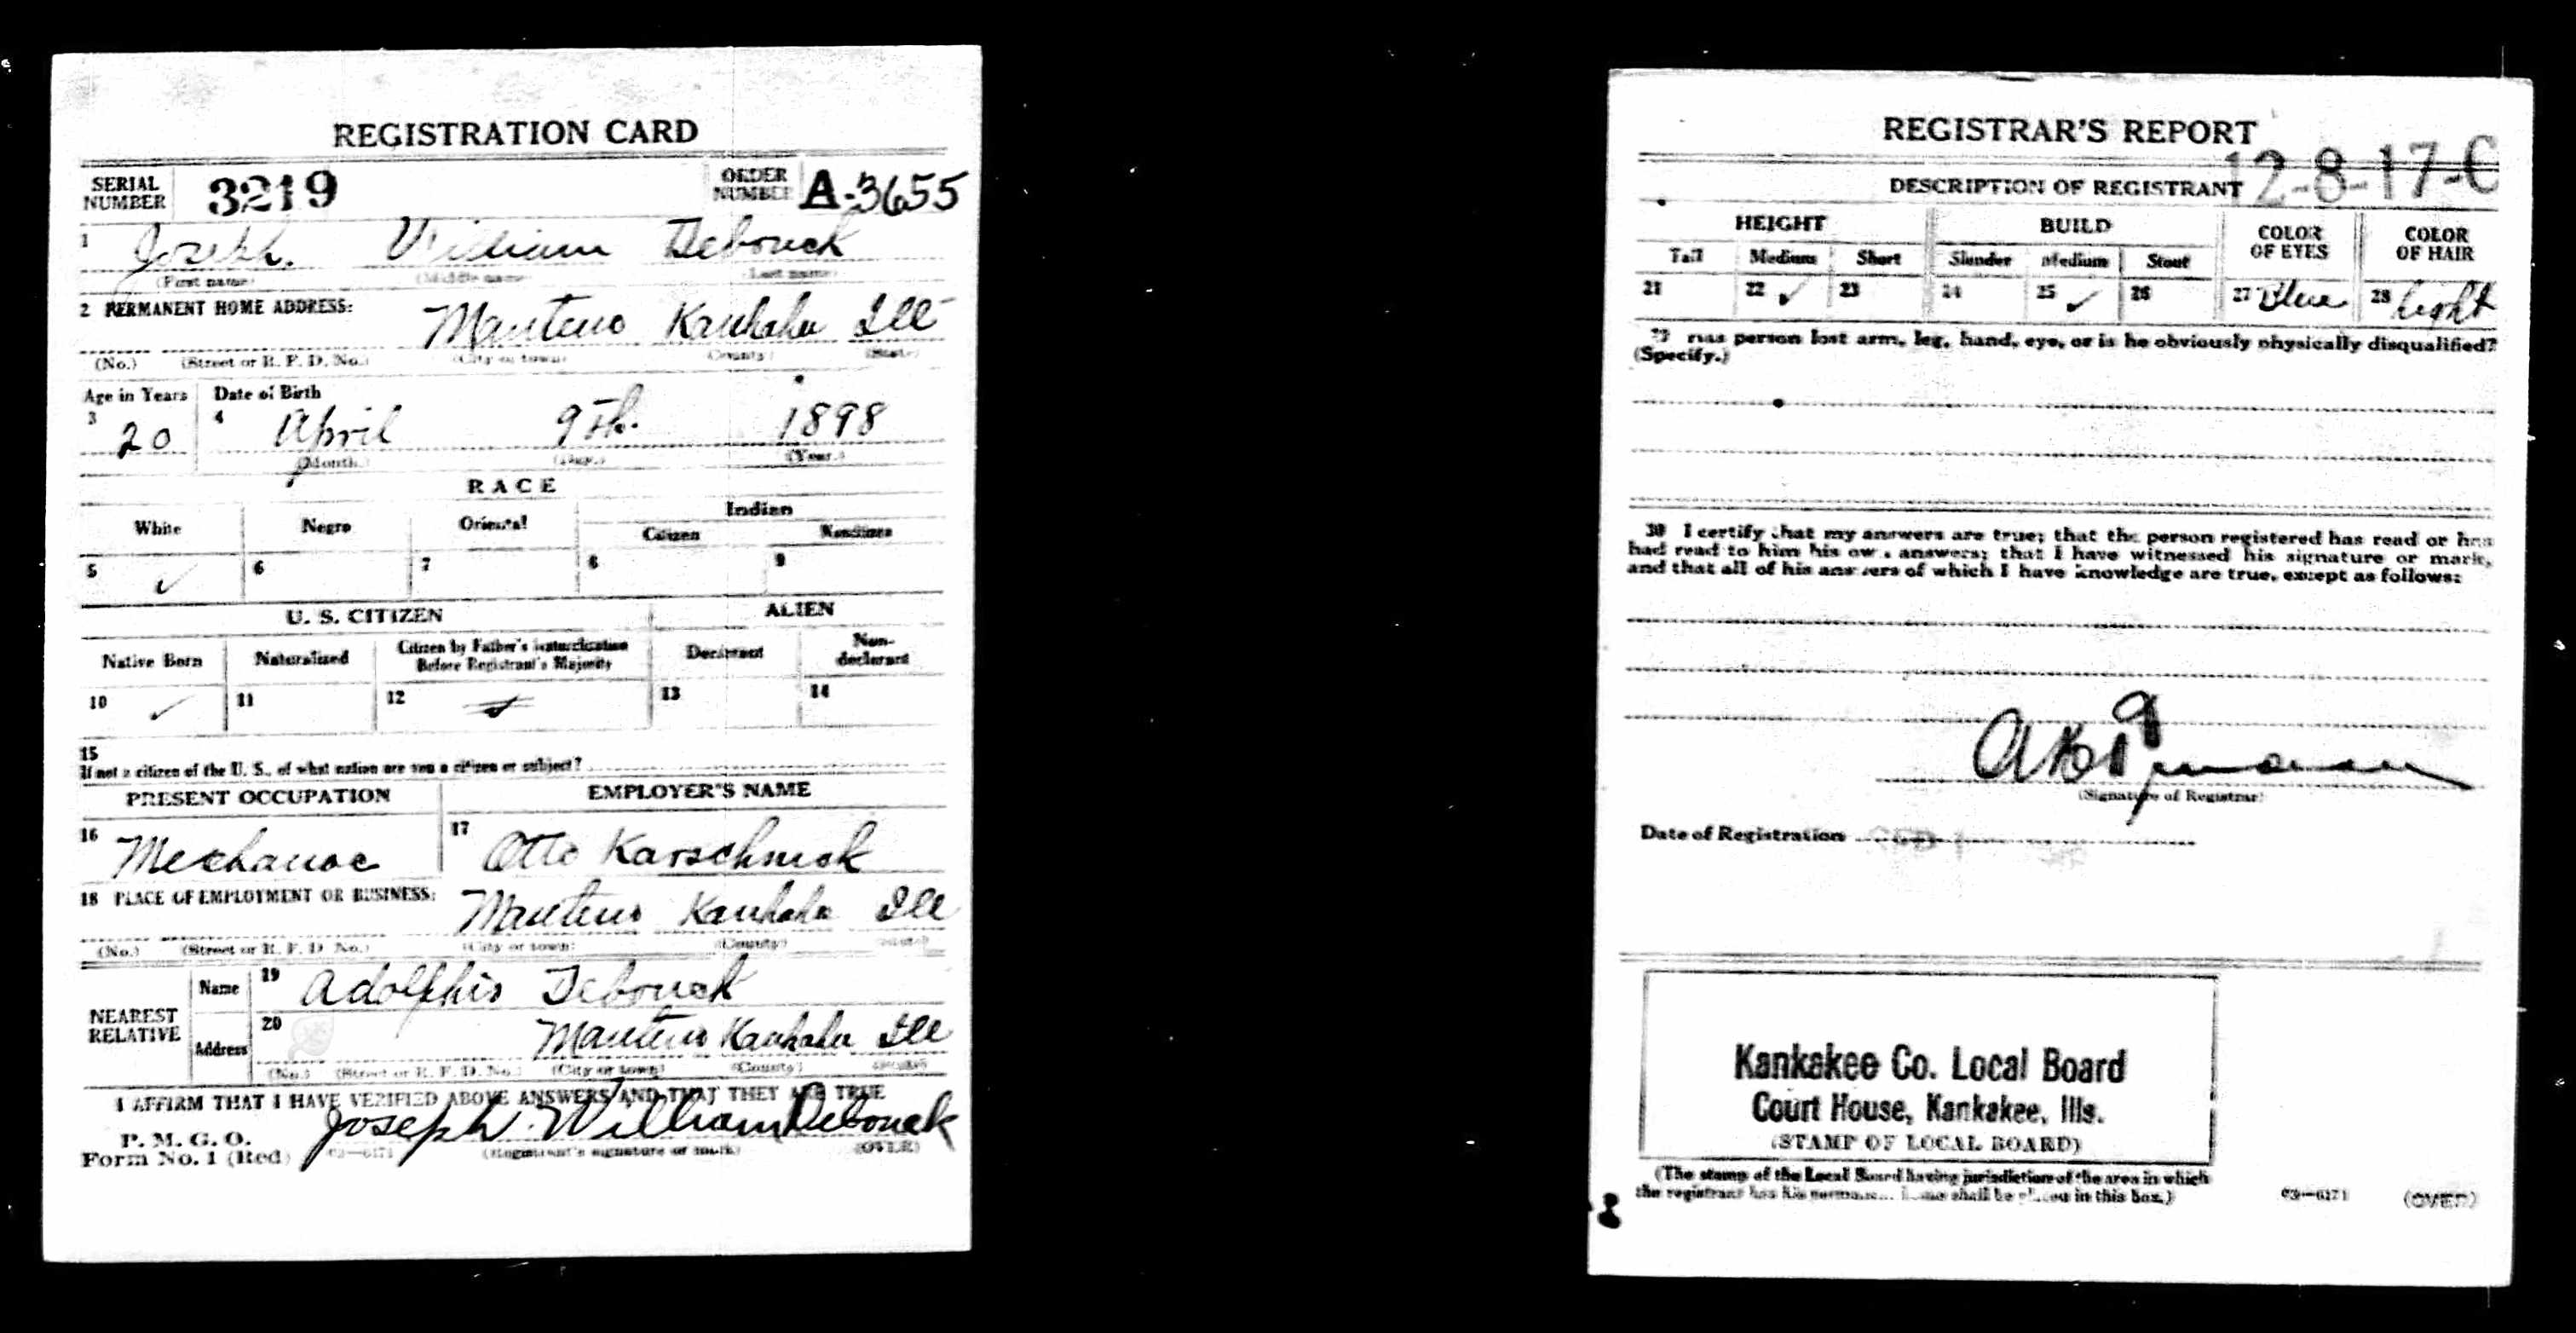 REGISTRATION CARD
SERIAL NUMBER 3219 ORDER NUMBER A-3655
1 Joseph. William Debouck
(First name) (Middle name) (Last name)
2 PERMANENT HOME ADDRESS:
Manteno Kankake Ill
(No.) (Street or R. F. D. No.) (City or town) (County) (State)
Age in Years Date of Birth
3 20 4 April 9th. 1898
(Month.) (Day.) (Year.)
RACE
White Negro Oriental Indian
Citizen Noncitizen
5 ✓ 6 7 8 9
U. S. CITIZEN ALIEN
Native Born Naturalized Citizen by Father's Naturalization Before Registrant's Majority Declarant Non-declarant
10 ✓ 11 12 13 14
15
If not a citizen of the U. S., of what nation are you a citizen or subject?
PRESENT OCCUPATION EMPLOYER'S NAME
16 Mechanoc 17 Otto Karschnick
18 PLACE OF EMPLOYMENT OR BUSINESS:
Manteno Kankake Ill
(No.) (Street or R. F. D. No.) (City or town) (County) (State)
NEAREST RELATIVE
Name 19 Adolphis Debouck
Address 20 Manteno Kankake Ill
(No.) (Street or R. F. D. No.) (City or town) (County) (State)
I AFFIRM THAT I HAVE VERIFIED ABOVE ANSWERS AND THAT THEY ARE TRUE
P. M. G. O.
Form No. 1 (Red) 03—6171 Joseph. William Debouck
(Registrant's signature or mark) (OVER)
REGISTRAR'S REPORT
12-8-17-C
DESCRIPTION OF REGISTRANT
HEIGHT BUILD COLOR OF EYES COLOR OF HAIR
Tall Medium Short Slender Medium Stout
21 22 ✓ 23 24 25 ✓ 26 27 Blue 28 light
29 Has person lost arm, leg, hand, eye, or is he obviously physically disqualified?
(Specify.)
30 I certify that my answers are true; that the person registered has read or has
had read to him his own answers; that I have witnessed his signature or mark,
and that all of his answers of which I have knowledge are true, except as follows:
(Signature of Registrar)
Date of Registration
Kankakee Co. Local Board
Court House, Kankakee, Ills.
(STAMP OF LOCAL BOARD)
(The stamp of the Local Board having jurisdiction of the area in which
the registrant has his permanent home shall be placed in this box.)
03—6171 (OVER)